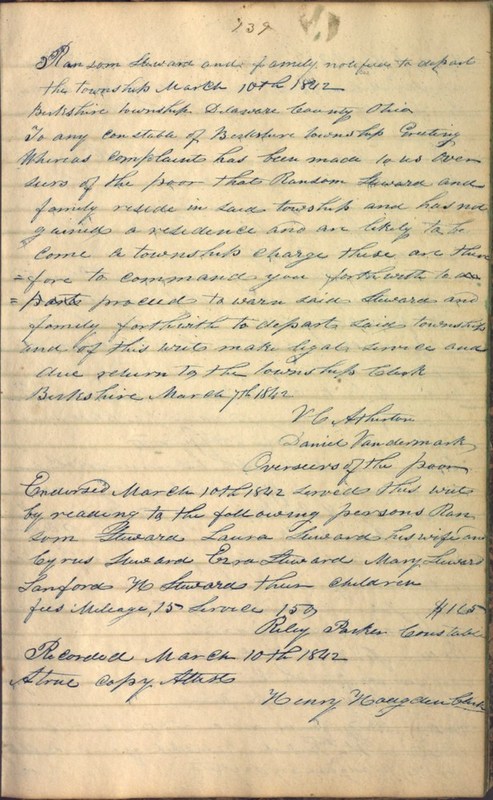 139
Ransom Steward and family notified to depart
this township March 10th 1842
Berkshire township Delaware County Ohio
To any constable of Berkshire township Greeting
Whereas complaint has been made to us over
seers of the poor that Ransom Steward and
family reside in said township and has not
gained a residence and are likely to be
come a township charge these are there
=fore to command you forthwith to
= proceed to warn said Steward and
family forthwith to depart said township
and of this writ make legal service and
due return to the township Clerk
Berkshire March 7th 1842
V C Atherton
Daniel Vandermark
Overseers of the poor
Endorsed March 10th 1842 served this writ
by reading to the following persons Ran
som Steward Laura Steward his wife and
Cyrus Steward Ezra Steward Mary Steward
Sanford N Steward their children
fees Mileage, 15 Service 150 $165
Riley Parker Constable
Recorded March 10th 1842
A true copy Attest
Henry Hodgden Clerk